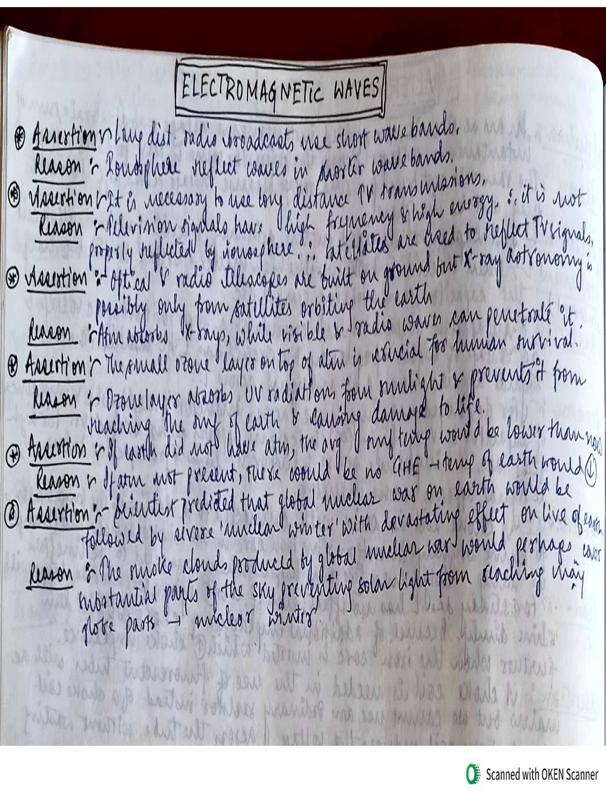 ELECTROMAGNETIC WAVES
Assertion :- Long dist. radio broadcasts use short wave bands.
Reason :- Ionosphere reflect waves in shorter wave bands.
Assertion :- It is necessary to use long distance TV transmissions.
Reason :- Television signals have high frequency & high energy. ∴ it is not
properly reflected by ionosphere ∴ satellites are used to reflect TV signals.
Assertion :- Optical & radio telescopes are built on ground but X-ray astronomy is
possibly only from satellites orbiting the earth
Reason :- Atm absorbs X-rays, while visible & radio waves can penetrate it.
Assertion :- The small ozone layer on top of atm is crucial for human survival.
Reason :- Ozone layer absorbs UV radiations from sunlight & prevents it from
reaching the surf of earth & causing damage to life.
Assertion :- If earth did not have atm, the avg surf temp would be lower than now
Reason :- If atm not present, there would be no GHE → temp of earth would ↓
Assertion :- Scientist predicted that global nuclear war on earth would be
followed by severe 'nuclear winter' with devastating effect on live of earth
Reason :- The smoke clouds produced by global nuclear war would perhaps cover
substantial parts of the sky preventing solar light from reaching
globe parts → nuclear winter
Scanned with OKEN Scanner